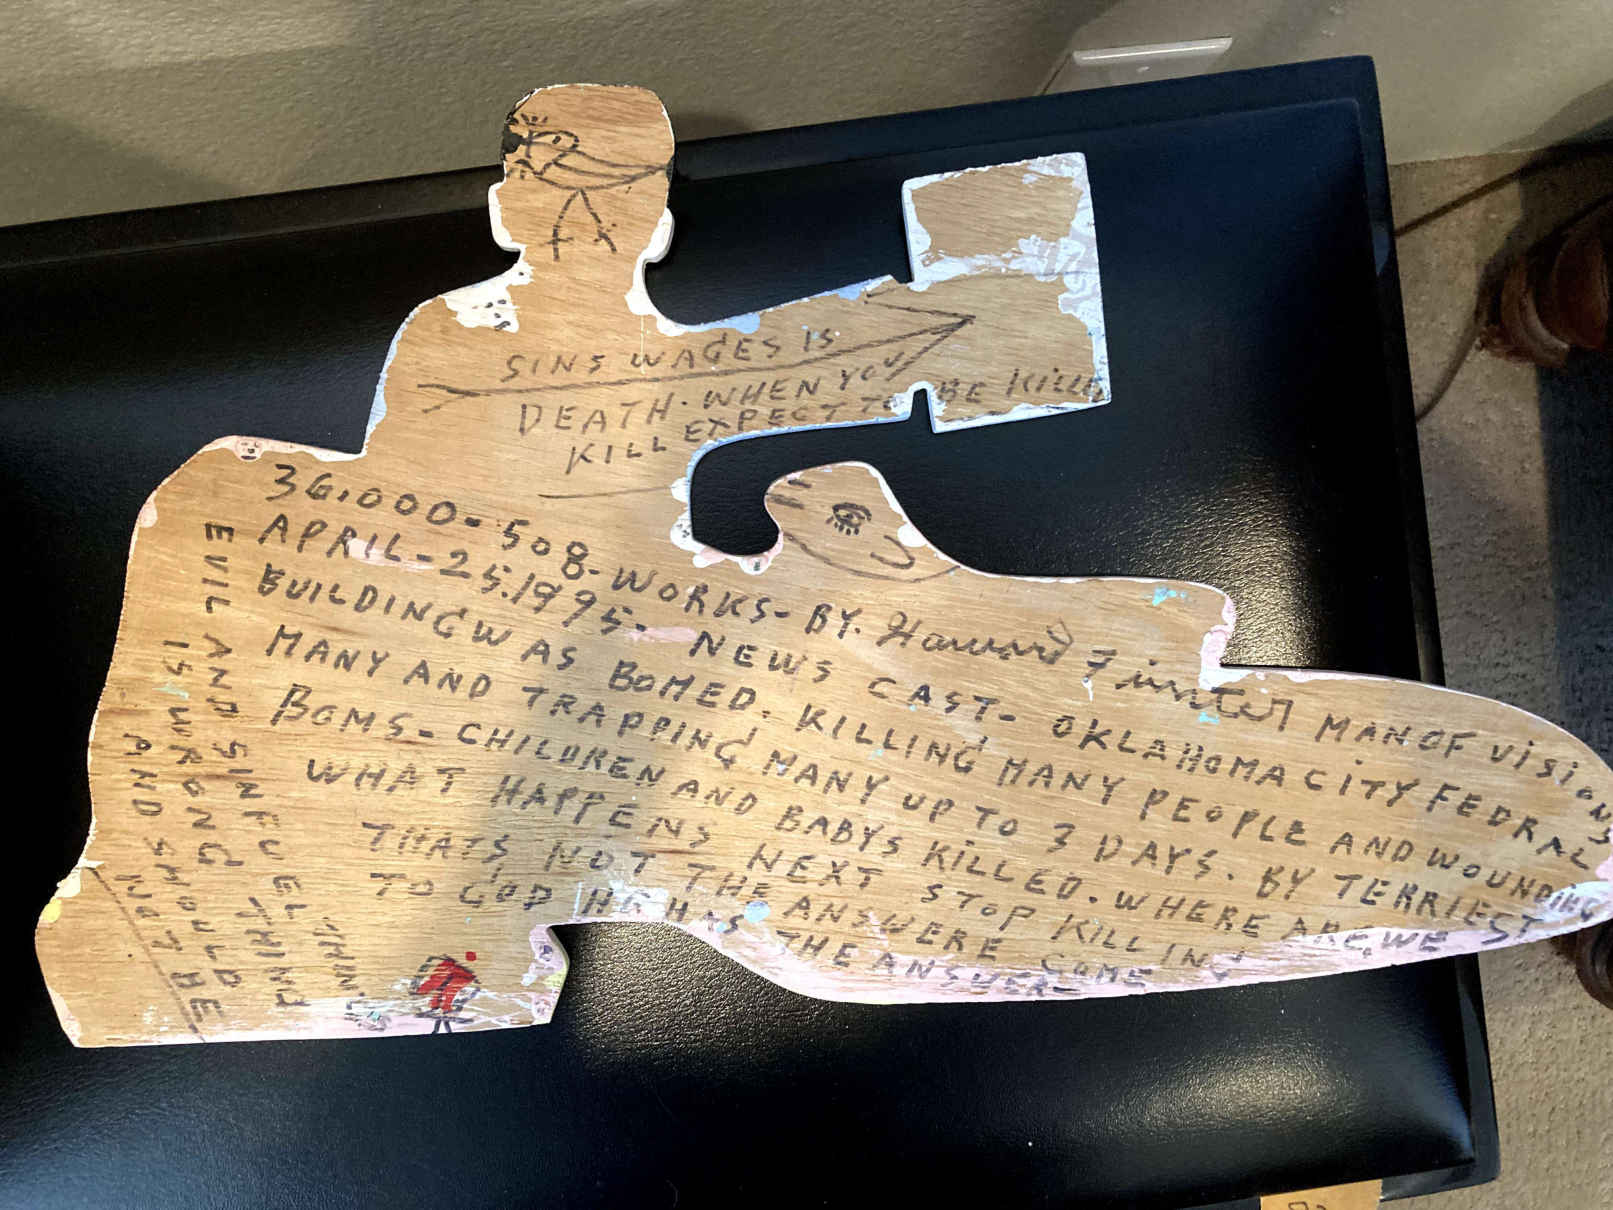 SINS WAGES IS
DEATH. WHEN YOU
KILL EXPECT TO BE KILLED
36.000-508-WORKS-BY. Howard Finster MAN OF VISIONS
APRIL-25.1995- NEWS CAST- OKLAHOMA CITY FEDRAL
BUILDING WAS BOMED. KILLING MANY PEOPLE AND WOUNDING
MANY AND TRAPPING MANY UP TO 3 DAYS. BY TERRIEST
BOMS- CHILDREN AND BABYS KILLED. WHERE ARE WE
WHAT HAPPENS NEXT STOP KILLING
THATS NOT THE ANSWERE COME
TO GOD HE HAS THE ANSWER
EVIL AND SINFUEL
IS WRONG
AND SHOULD
NOT BE